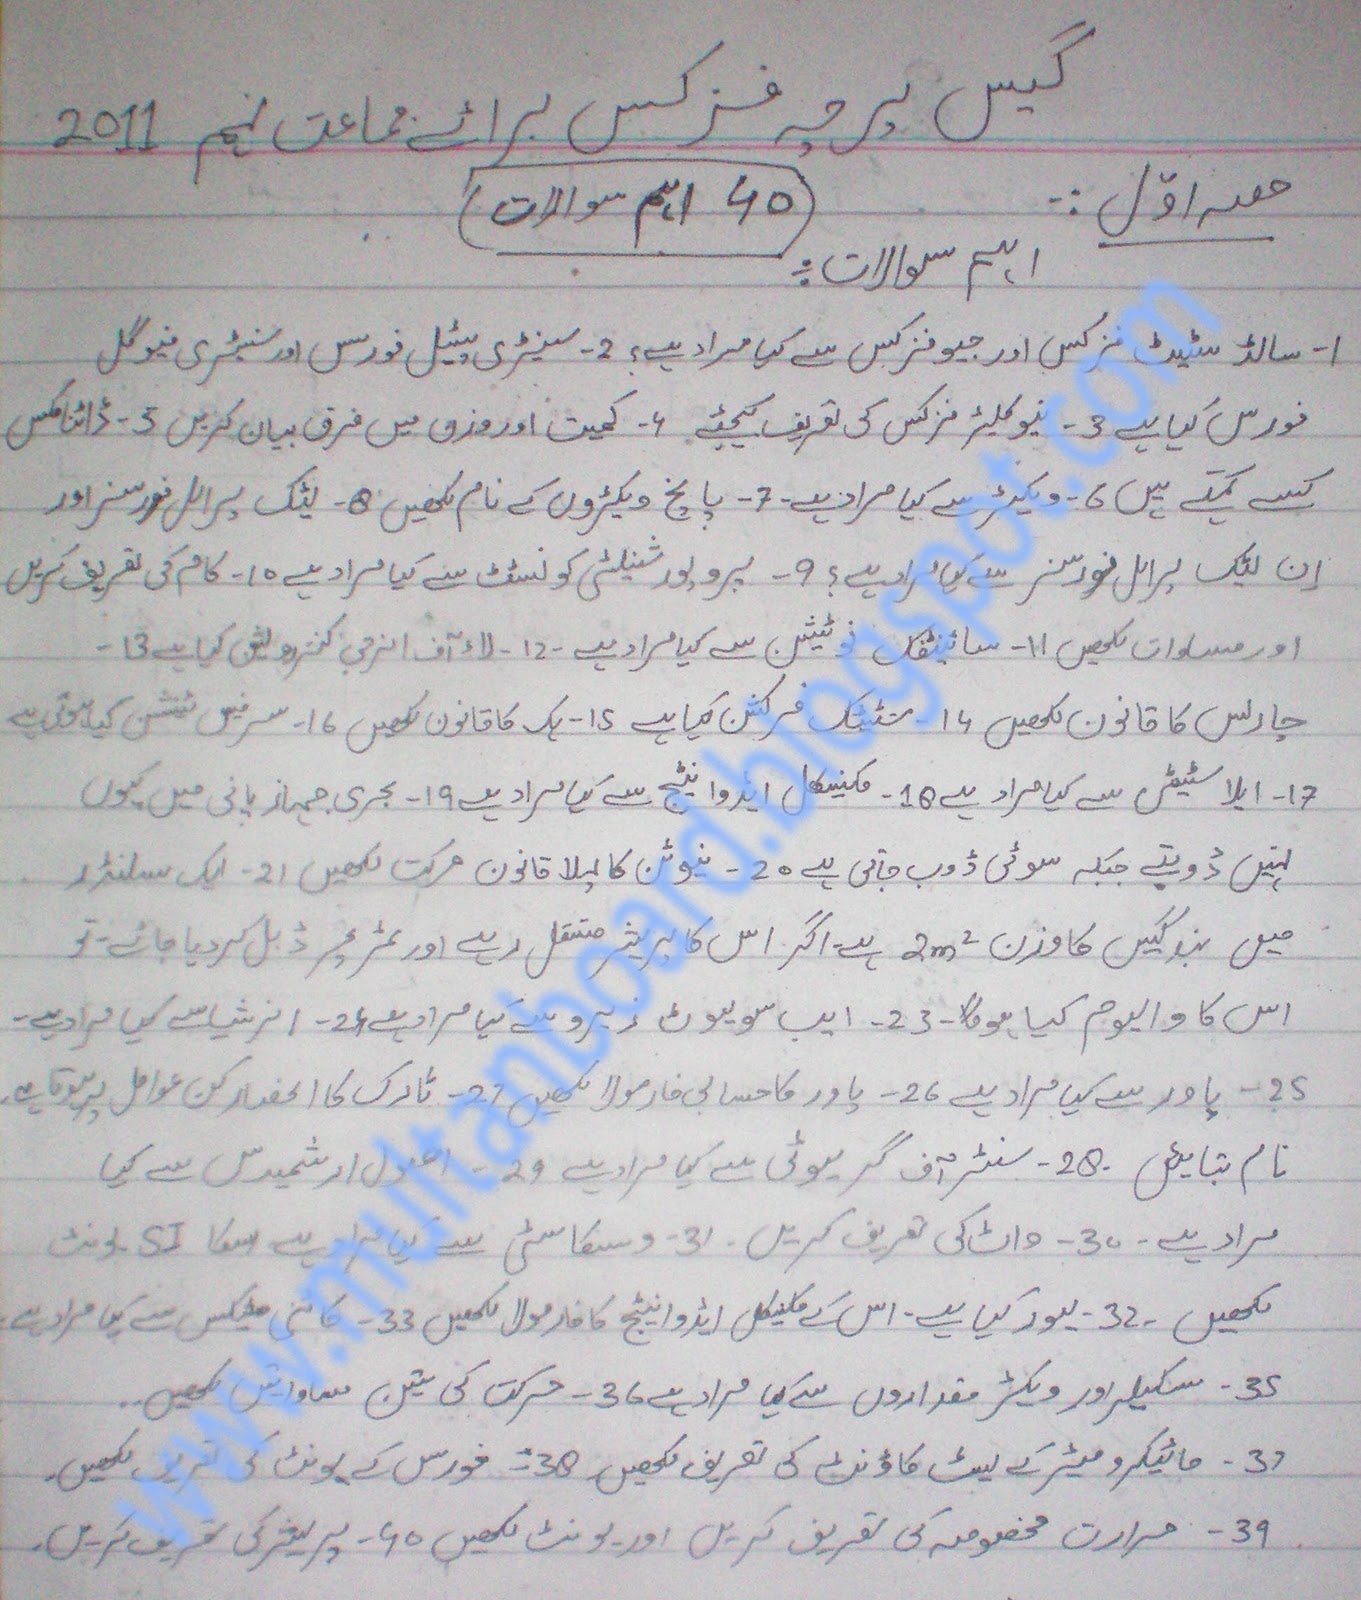 گیس پرچہ فزکس برائے جماعت نہم 2011
حصہ اوّل :-
40 اہم سوالات
اہم سوالات :-
1- سالڈ سٹیٹ فزکس اور جیو فزکس سے کیا مراد ہے؟ 2- سینٹری پیٹل فورس اور سینٹری فیوگل
فورس کیا ہے 3- نیوکلیئر فزکس کی تعریف کیجئے 4- کمیت اور وزن میں فرق بیان کریں 5- ڈائنامکس
کسے کہتے ہیں 6- ویکٹر سے کیا مراد ہے۔ 7- پانچ ویکٹروں کے نام لکھیں 8- لائک پیرالل فورسز اور
ان لائک پیرالل فورسز سے کیا مراد ہے؟ 9- پروپورشنیلٹی کونسٹنٹ سے کیا مراد ہے 10- کام کی تعریف کریں
اور مساوات لکھیں 11- سائینٹفک نوٹیشن سے کیا مراد ہے -12- لاء آف انرجی کنزرویشن کیا ہے 13-
چارلس کا قانون لکھیں 14- سٹیٹک فرکشن کیا ہے 15- ہک کا قانون لکھیں 16- سرفیس ٹینشن کیا ہوتی ہے
17- ایلاسٹیسٹی سے کیا مراد ہے 18- مکینیکل ایڈوانٹیج سے کیا مراد ہے 19- بحری جہاز پانی میں کیوں
نہیں ڈوبتے جبکہ سوئی ڈوب جاتی ہے 20- نیوٹن کا پہلا قانون حرکت لکھیں 21- ایک سلنڈر
میں بند گیس کا وزن 2m² ہے۔ اگر اس کا پریشر مستقل رہے اور ٹمپریچر ڈبل کر دیا جائے۔ تو
اس کا والیوم کیا ہوگا۔ 23- ایبسولیوٹ زیرو سے کیا مراد ہے 24- انرشیا سے کیا مراد ہے۔
25- پاور سے کیا مراد ہے 26- پاور کا حسابی فارمولا لکھیں 27- ٹارک کا انحصار کن عوامل پر ہوتا ہے۔
نام بتایئں ۔ 28- سنٹر آف گریویٹی سے کیا مراد ہے 29- اصول ارشمیدس سے کیا
مراد ہے۔ 30- واٹ کی تعریف کریں۔ 31- وسکاسٹی سے کیا مراد ہے اسکا SI یونٹ
لکھیں ۔ 32- لیور کیا ہے۔ اس کے مکینیکل ایڈوانٹیج کا فارمولا لکھیں 33- کائنی میٹکس سے کیا مراد ہے۔
35- سکیلر اور ویکٹر مقداروں سے کیا مراد ہے 36- حرکت کی تین مساواتیں لکھیں۔
37- مائیکرو میٹر کے لیسٹ کاؤنٹ کی تعریف لکھیں 38- فورس کے یونٹ کی تعریف لکھیں۔
39- حرارت مخصوصہ کی تعریف کریں اور یونٹ لکھیں 40- پریشر کی تعریف کریں۔
www.multanboard.blogspot.com